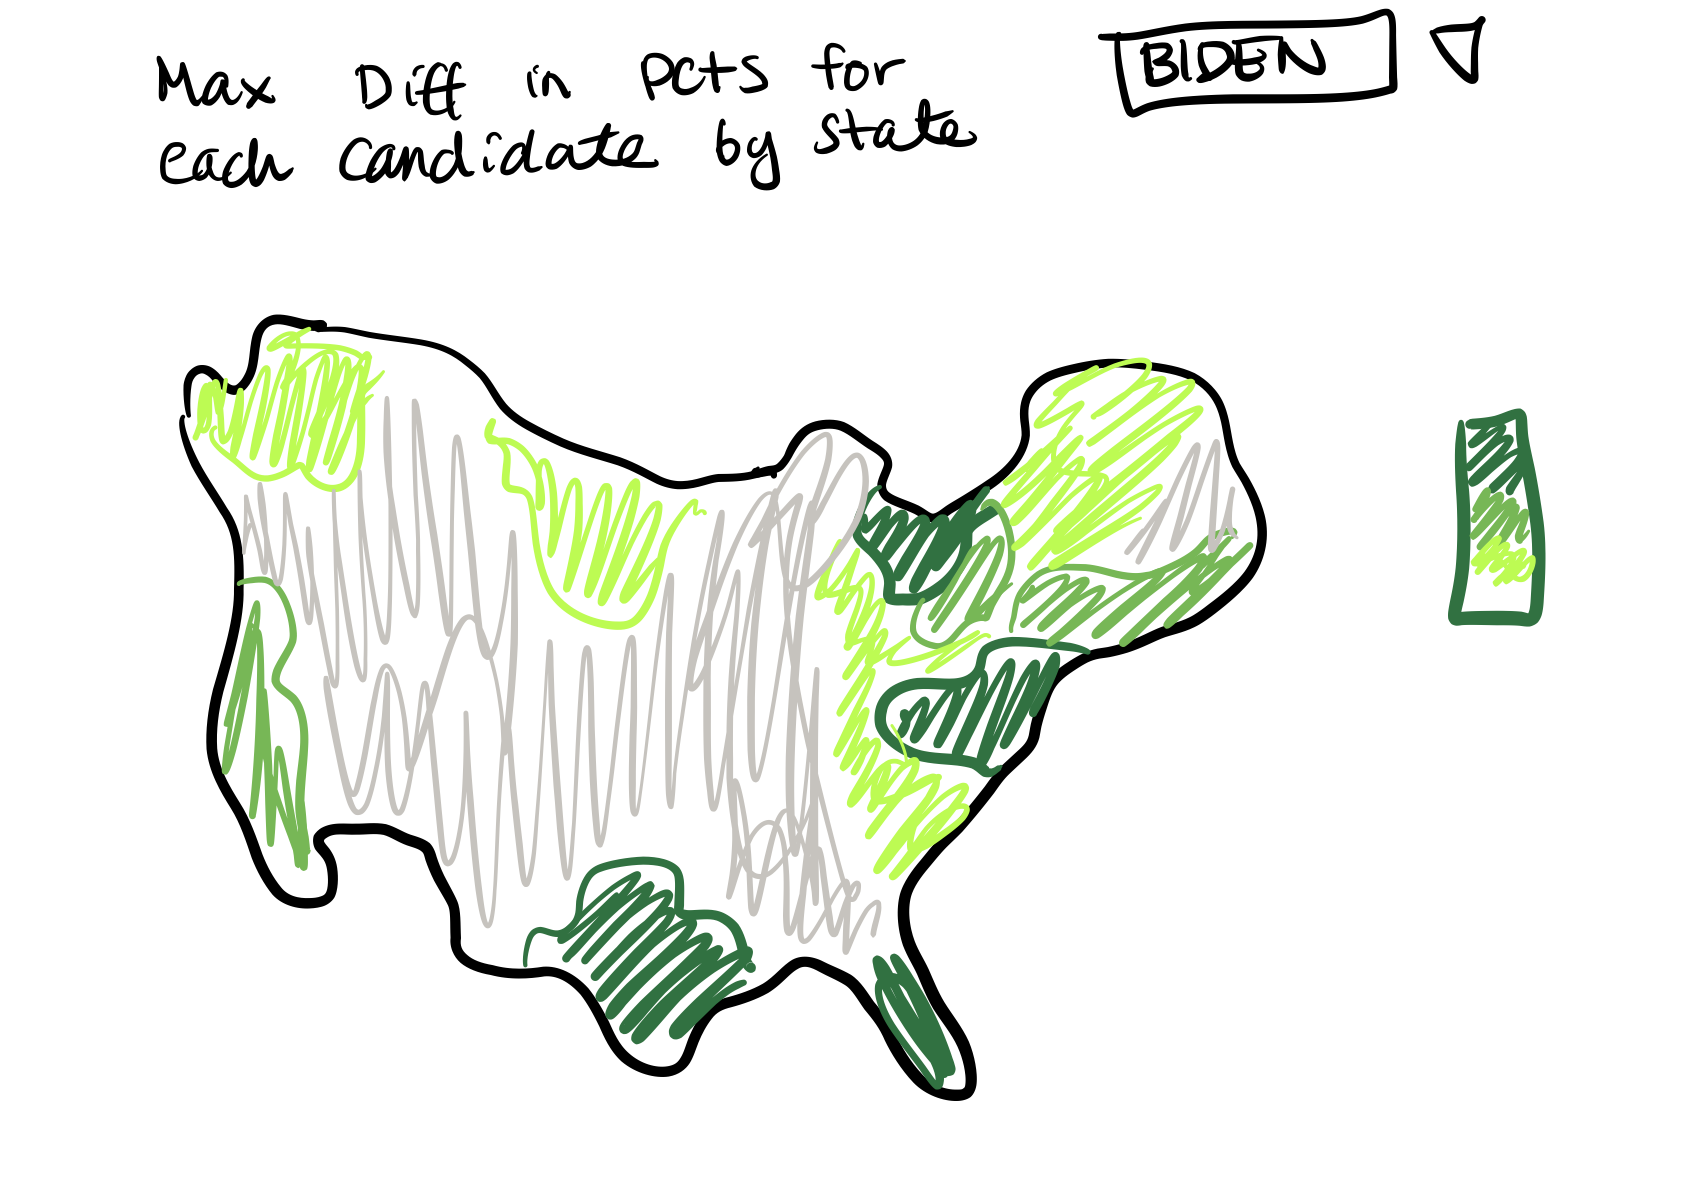 Max Diff in Pcts for
each candidate by state
BIDEN